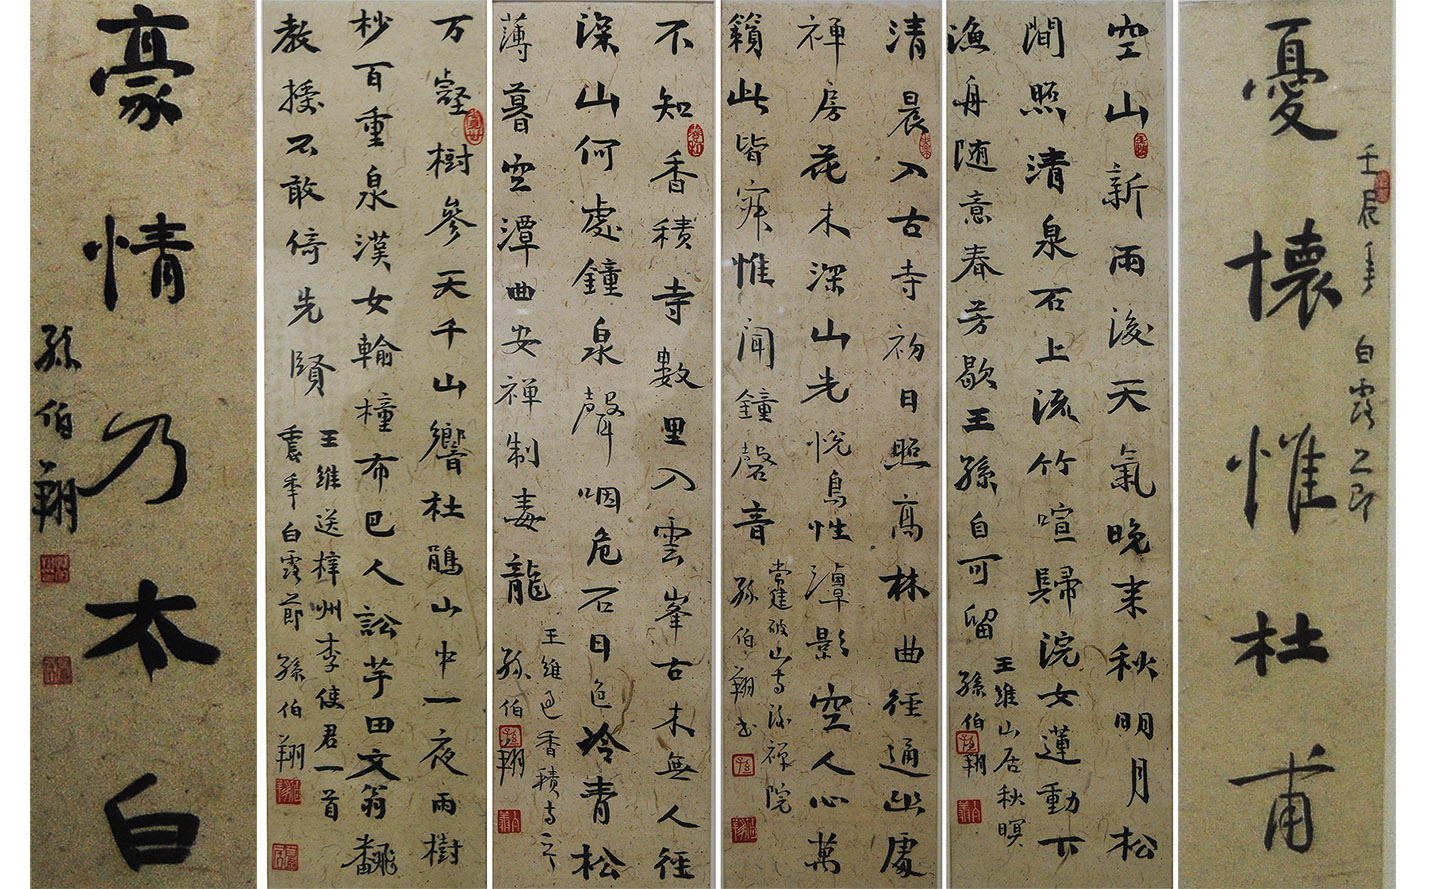 憂懷惟杜甫
壬辰年 白露之節
空山新雨後天氣晚来秋明月松
間照清泉石上流竹喧歸浣女蓮動下
漁舟随意春芳歇王孫自可留
王維山居秋暝
孫伯翔
清晨入古寺初日照高林曲徑通幽處
禅房花木深山光悦鳥性潭影空人心萬
籟此皆寂惟聞鐘磬音
常建破山寺後禅院
孫伯翔书
不知香積寺數里入雲峯古木無人徑
深山何處鐘泉聲咽危石日色冷青松
薄暮空潭曲安禅制毒龍
王維過香積寺
孫伯翔
万壑樹參天千山響杜鵑山中一夜雨樹
杪百重泉漢女輸橦布巴人訟芋田文翁飜
教授不敢倚先賢
王維送梓州李使君一首
年白露節 孫伯翔
豪情乃太白
孫伯翔